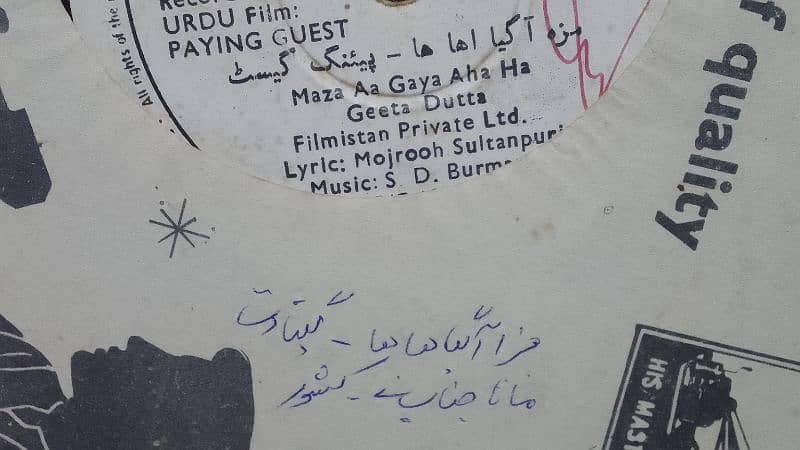 URDU Film:
PAYING GUEST
مزہ آ گیا اھا ھا - پیئنگ گیسٹ
Maza Aa Gaya Aha Ha
Geeta Dutta
Filmistan Private Ltd.
Lyric: Mojrooh Sultanpuri
Music: S. D. Burm
All rights of the
f quality
مزا آگیا ہا ہا - گیتا دت
مانا جناب نے - کشور
HIS MAST